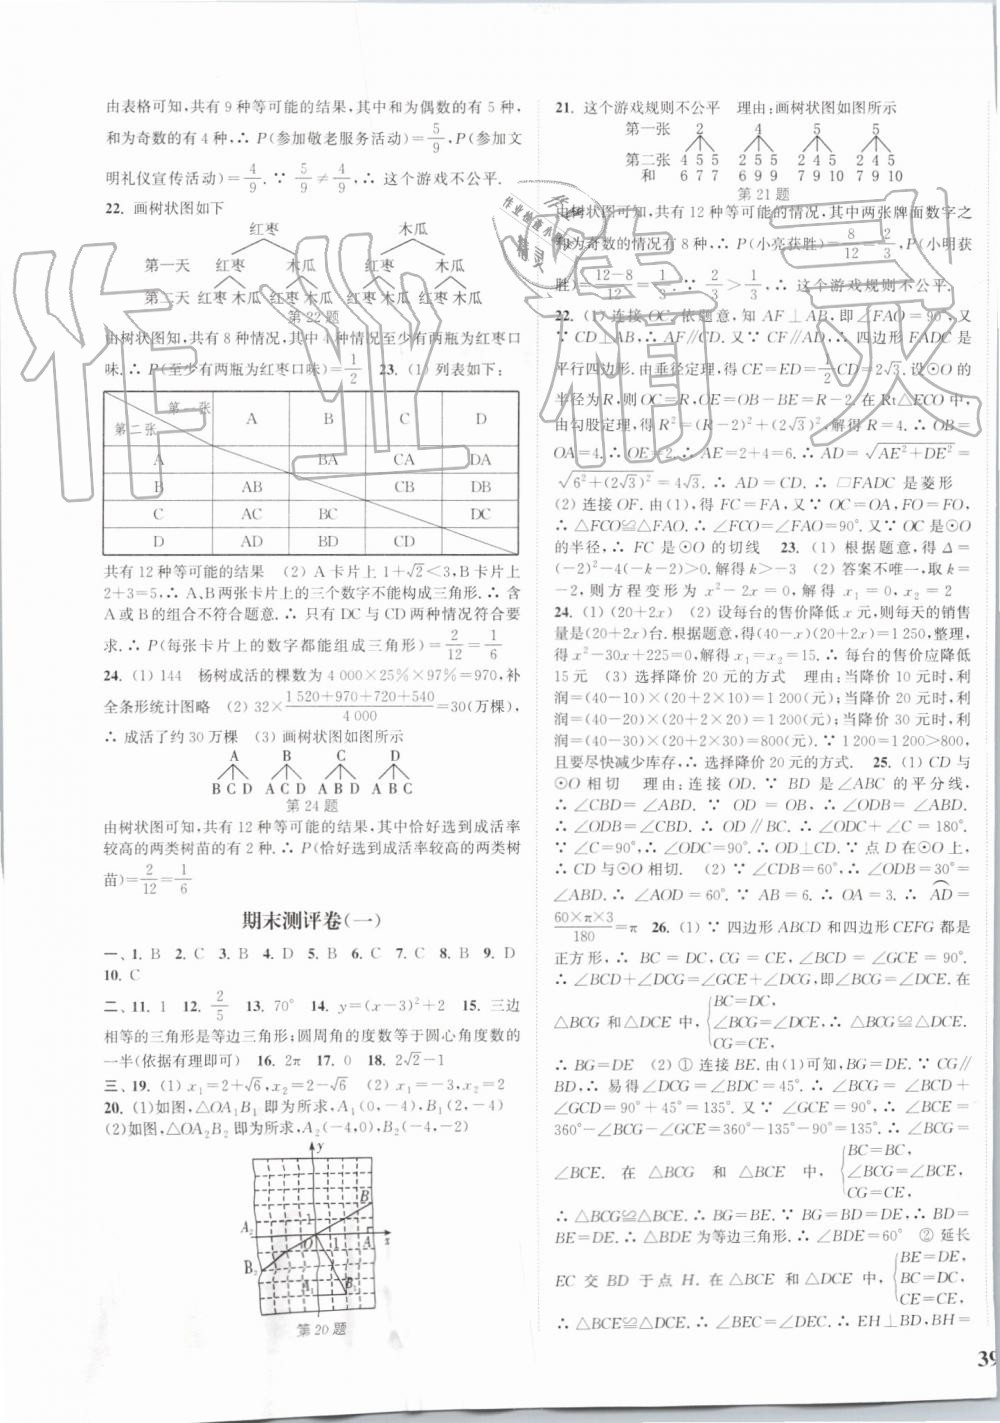 由表格可知,共有9种等可能的结果,其中和为偶数的有5种,
和为奇数的有4种,∴ P(参加敬老服务活动)=5/9,P(参加文
明礼仪宣传活动)=4/9.∵ 5/9≠4/9,∴ 这个游戏不公平.
22. 画树状图如下
红枣 木瓜
第一天 红枣 木瓜 红枣 木瓜
第二天 红枣 木瓜 红枣 木瓜 红枣 木瓜 红枣 木瓜
第22题
由树状图可知,共有8种情况,其中4种情况至少有两瓶为红枣口
味.∴ P(至少有两瓶为红枣口味)=1/2 23. (1) 列表如下:
第一张 第二张 A B C D
A BA CA DA
B AB CB DB
C AC BC DC
D AD BD CD
共有12种等可能的结果 (2) A卡片上1+√2<3,B卡片上
2+3=5,∴ A、B两张卡片上的三个数字不能构成三角形.∴ 含
A或B的组合不符合题意.∴ 只有DC与CD两种情况符合要
求.∴ P(每张卡片上的数字都能组成三角形)=2/12=1/6
24. (1) 144 杨树成活的棵数为4 000×25%×97%=970,补
全条形统计图略 (2) 32×(1 520+970+720+540)/4 000=30(万棵),
∴ 成活了约30万棵 (3) 画树状图如图所示
A B C D
B C D A C D A B D A B C
第24题
由树状图可知,共有12种等可能的结果,其中恰好选到成活率
较高的两类树苗的有2种.∴ P(恰好选到成活率较高的两类树
苗)=2/12=1/6
期末测评卷(一)
一、1. B 2. C 3. B 4. D 5. B 6. C 7. C 8. B 9. D
10. C
二、11. 1 12. 2/5 13. 70° 14. y=(x-3)²+2 15. 三边
相等的三角形是等边三角形;圆周角的度数等于圆心角度数的
一半(依据有理即可) 16. 2π 17. 0 18. 2√2-1
三、19. (1) x₁=2+√6,x₂=2-√6 (2) x₁=-3,x₂=2
20. (1)如图,△OA₁B₁即为所求,A₁(0,-4),B₁(2,-4)
(2)如图,△OA₂B₂即为所求,A₂(-4,0),B₂(-4,-2)
y
B
A₂ 1
O 1 A x
B₂
A₁ B₁
第20题
21. 这个游戏规则不公平 理由:画树状图如图所示
第一张 2 4 5 5
第二张 4 5 5 2 5 5 2 4 5 2 4 5
和 6 7 7 6 9 9 7 9 10 7 9 10
第21题
由树状图可知,共有12种等可能的情况,其中两张牌面数字之
和为奇数的情况有8种,∴ P(小亮获胜)=8/12=2/3,P(小明获
胜)=(12-8)/12=1/3.∵ 2/3>1/3,∴ 这个游戏规则不公平.
22. (1) 连接OC.依题意,知AF⊥AB,即∠FAO=90°.又
∵ CD⊥AB,∴ AF∥CD.又∵ CF∥AD,∴ 四边形FADC是
平行四边形.由垂径定理,得CE=ED=1/2CD=2√3.设⊙O的
半径为R,则OC=R,OE=OB-BE=R-2.在Rt△ECO中,
由勾股定理,得R²=(R-2)²+(2√3)²,解得R=4.∴ OB=
OA=4.∴ OE=2.∴ AE=2+4=6.∴ AD=√(AE²+DE²)=
√(6²+(2√3)²)=4√3.∴ AD=CD.∴ □FADC是菱形
(2) 连接OF.由(1),得FC=FA,又∵ OC=OA,FO=FO,
∴ △FCO≌△FAO.∴ ∠FCO=∠FAO=90°.又∵ OC是⊙O
的半径,∴ FC是⊙O的切线 23. (1) 根据题意,得Δ=
(-2)²-4(-k-2)>0.解得k>-3 (2) 答案不唯一,取k=
-2,则方程变形为x²-2x=0,解得x₁=0,x₂=2
24. (1) (20+2x) (2) 设每台的售价降低x元,则每天的销售
量是(20+2x)台.根据题意,得(40-x)(20+2x)=1 250,整理,
得x²-30x+225=0,解得x₁=x₂=15.∴ 每台的售价应降低
15元 (3) 选择降价20元的方式 理由:当降价10元时,利
润=(40-10)×(20+2×10)=1 200(元);当降价20元时,利
润=(40-20)×(20+2×20)=1 200(元);当降价30元时,利
润=(40-30)×(20+2×30)=800(元).∵ 1 200=1 200>800,
且要尽快减少库存,∴ 选择降价20元的方式. 25. (1) CD与
⊙O相切 理由:连接OD.∵ BD是∠ABC的平分线,
∴ ∠CBD=∠ABD.∵ OD=OB,∴ ∠ODB=∠ABD.
∴ ∠ODB=∠CBD.∴ OD∥BC.∴ ∠ODC+∠C=180°.
∵ ∠C=90°,∴ ∠ODC=90°.∴ OD⊥CD.∵ 点D在⊙O上,
∴ CD与⊙O相切. (2) ∵ ∠CDB=60°,∴ ∠ODB=30°=
∠ABD.∴ ∠AOD=60°.∵ AB=6,∴ OA=3.∴ AD⌒=
(60×π×3)/180=π 26. (1) ∵ 四边形ABCD和四边形CEFG都是
正方形,∴ BC=DC,CG=CE,∠BCD=∠GCE=90°.
∴ ∠BCD+∠DCG=∠GCE+∠DCG,即∠BCG=∠DCE.在
△BCG和△DCE中,{BC=DC, ∠BCG=∠DCE, CG=CE, ∴ △BCG≌△DCE.
∴ BG=DE (2) ① 连接BE.由(1)可知,BG=DE.∵ CG∥
BD,∴ 易得∠DCG=∠BDC=45°.∴ ∠BCG=∠BCD+
∠GCD=90°+45°=135°.又∵ ∠GCE=90°,∴ ∠BCE=
360°-∠BCG-∠GCE=360°-135°-90°=135°.∴ ∠BCG=
∠BCE.在△BCG和△BCE中,{BC=BC, ∠BCG=∠BCE, CG=CE,
∴ △BCG≌△BCE.∴ BG=BE.∵ BG=BD=DE,∴ BD=
BE=DE.∴ △BDE为等边三角形.∴ ∠BDE=60° ② 延长
EC交BD于点H.在△BCE和△DCE中,{BE=DE, BC=DC, CE=CE,
∴ △BCE≌△DCE.∴ ∠BEC=∠DEC.∴ EH⊥BD,BH=
39
作业精灵